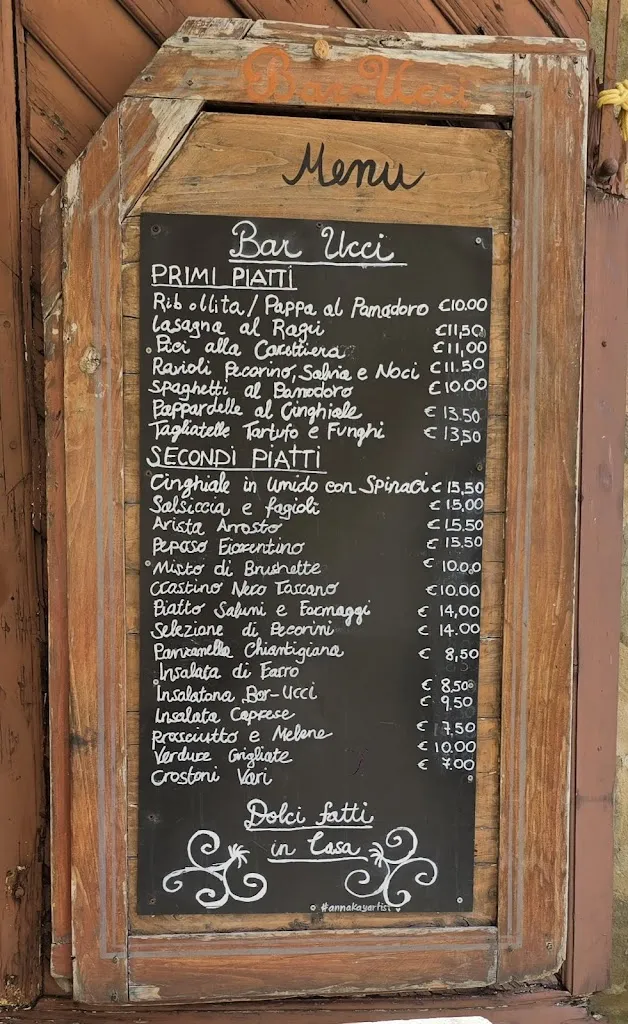 Bar-Ucci
Menu
Bar Ucci
PRIMI PIATTI
Ribollita/Pappa al Pomodoro €10.00
Lasagna al Ragù €11,50
Pici alla Carettiera €11,00
Ravioli Pecorino, Salvia e Noci €11.50
Spaghetti al Pomodoro €10.00
Pappardelle al Cinghiale € 13.50
Tagliatelle Tartufo e Funghi € 13,50
SECONDI PIATTI
Cinghiale in Umido con Spinaci € 15,50
Salsiccia e fagioli € 15,00
Arista Arrosto € 15,50
Peposo Fiorentino € 15.50
Misto di Brushette € 10.00
Crostino Nero Toscano €10.00
Piatto Salumi e Formaggi € 14,00
Selezione di Pecorini € 14.00
Panzanella Chiantigiana € 8,50
Insalata di Farro
Insalatona Bar-Ucci € 8,50
Insalata Caprese € 9.50
Prosciutto e Melone € 7,50
Verdure Grigliate € 10.00
Crostoni Vari € 7.00
Dolci fatti
in Casa
#annakayartist